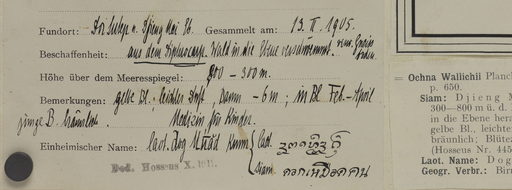 Fundort: Doi Sutep n. Djieng Mai Gb. Gesammelt am: 13. II. 1905.
Beschaffenheit: aus dem Wald in die Ebene verschwemmt.
Höhe über dem Meeresspiegel: 300 – 300 m.
Bemerkungen: gelbe Bl., leichter Duft, Baum – 6 m; in Bl. Feb. – April
junge B. bräunlich. Medizin für Kinder.
Einheimischer Name: laot. Dog Muad Kunn
Laot.
Siam. ดอกเหมือดคน
Ded. Hosseus X. 19
Ochna Wallichii Planch
p. 650.
Siam: Djieng M
300—800 m ü. d.
in die Ebene hera
gelbe Bl., leichte
bräunlich; Blüte
(Hosseus Nr. 445
Laot. Name: Dog
Geogr. Verbr.: Bir